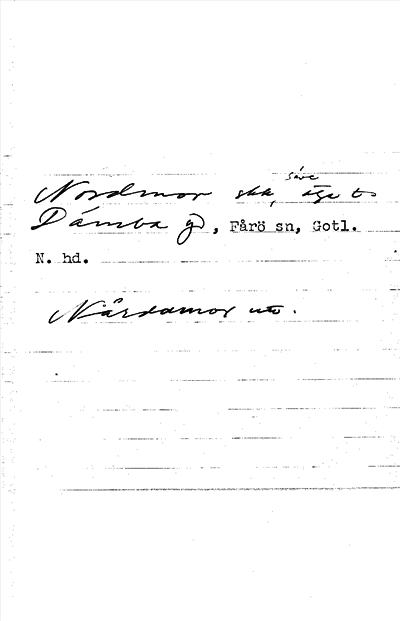 Säve
Nordmor skk, äga t.
Dämba gd, Fårö sn, Gotl.
N. hd.
Nårdamor utt.